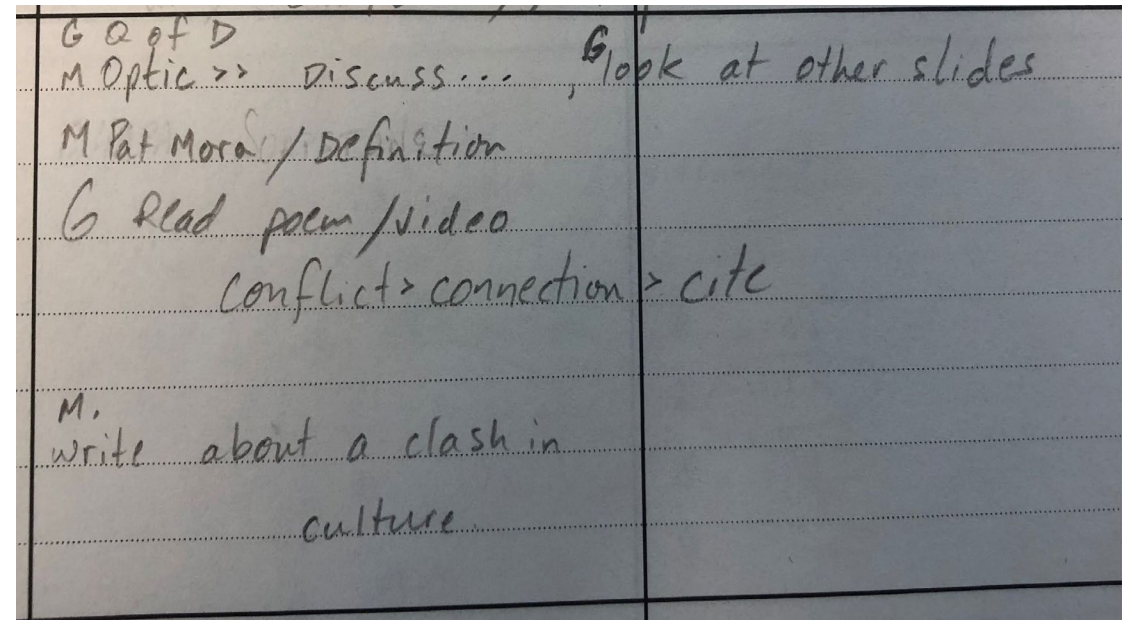 G Q of D
M Optic >> Discuss... , G look at other slides
M Pat Mora / Definition
G Read poem / video
conflict > connection > cite
M.
write about a clash in
culture